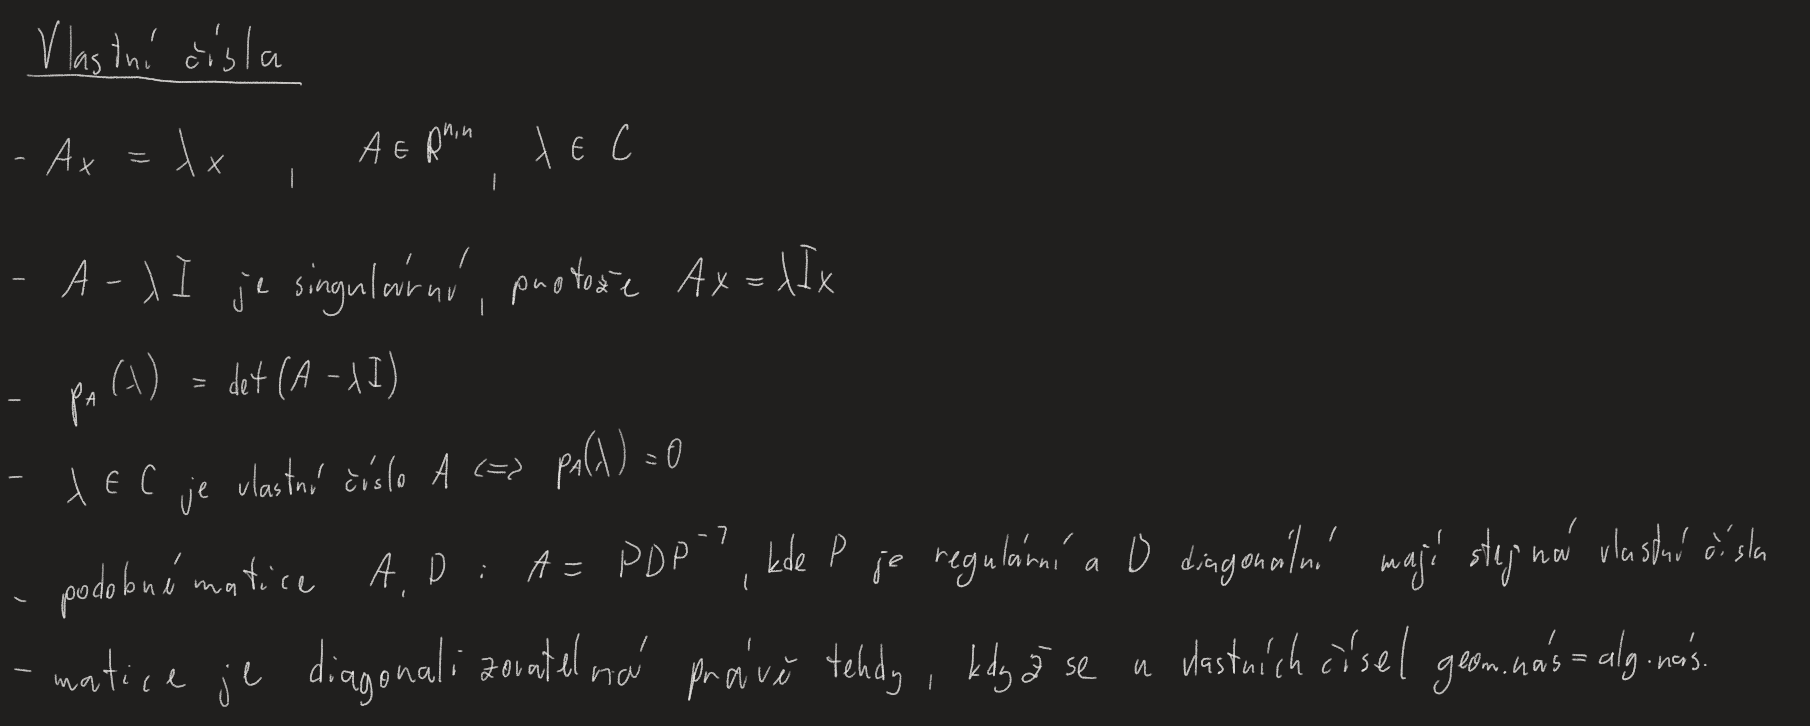 Vlastní čísla
- Ax = λx , A ∈ R^{n,n} , λ ∈ C
- A - λI je singulární, protože Ax = λIx
- p_A(λ) = det(A - λI)
- λ ∈ C je vlastní číslo A <=> p_A(λ) = 0
- podobné matice A, D : A = PDP^{-1}, kde P je regulární a D diagonální mají stejná vlastní čísla
- matice je diagonalizovatelná právě tehdy, když se u vlastních čísel geom.nás = alg.nás.